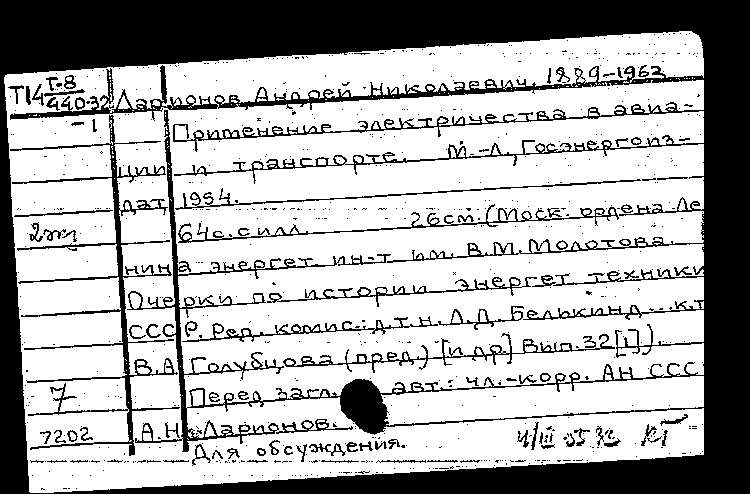 Т14 Т-8
440-32 Ларионов, Андрей Николаевич, 1889-1962
-1 Применение электричества в авиа-
ции и транспорте. М.-Л., Госэнергоиз-
дат, 1954.
2жу 64с. с илл. 26см. (Моск. ордена Ле
нина энергет. ин-т им. В.М. Молотова.
Очерки по истории энергет. техники
СССР. Ред. комис.: д.т.н. Л.Д. Белькинд...к.т
В.А. Голубцова (пред.) [и др] Вып. 32[1]).
7 Перед загл. авт.: чл.-корр. АН ССС
7202 А.Н. Ларионов.
Для обсуждения. 4/III